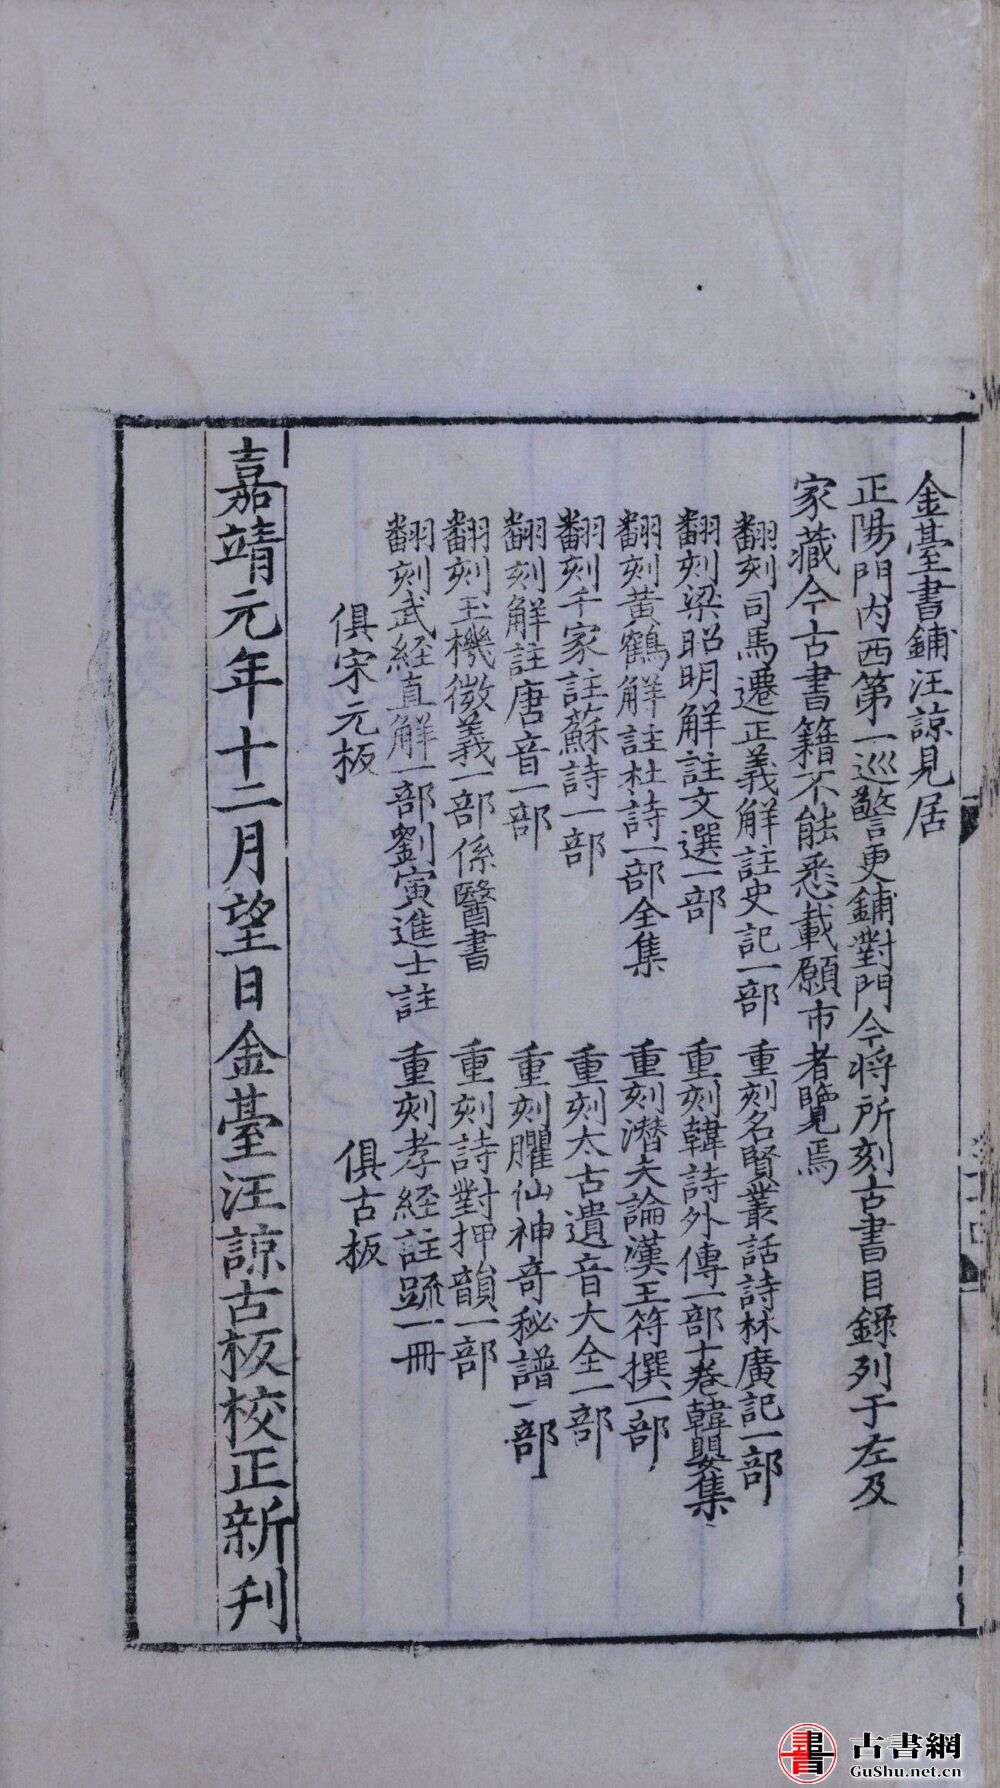 金臺書鋪汪諒見居
正陽門內西第一巡警更鋪對門今將所刻古書目錄列于左及
家藏今古書籍不能悉載願市者覽焉
翻刻司馬遷正義解註史記一部
重刻名賢叢話詩林廣記一部
翻刻梁昭明解註文選一部
重刻韓詩外傳一部十卷韓嬰集
翻刻黃鶴解註杜詩一部全集
重刻潛夫論漢王符撰一部
翻刻千家註蘇詩一部
重刻太古遺音大全一部
翻刻解註唐音一部
重刻臞仙神奇秘譜一部
翻刻玉機微義一部係醫書
重刻詩對押韻一部
翻刻武經直解一部劉寅進士註
重刻孝經註疏一冊
俱宋元板
俱古板
嘉靖元年十二月望日金臺汪諒古板校正新刋
古書網
GuShu.net.cn